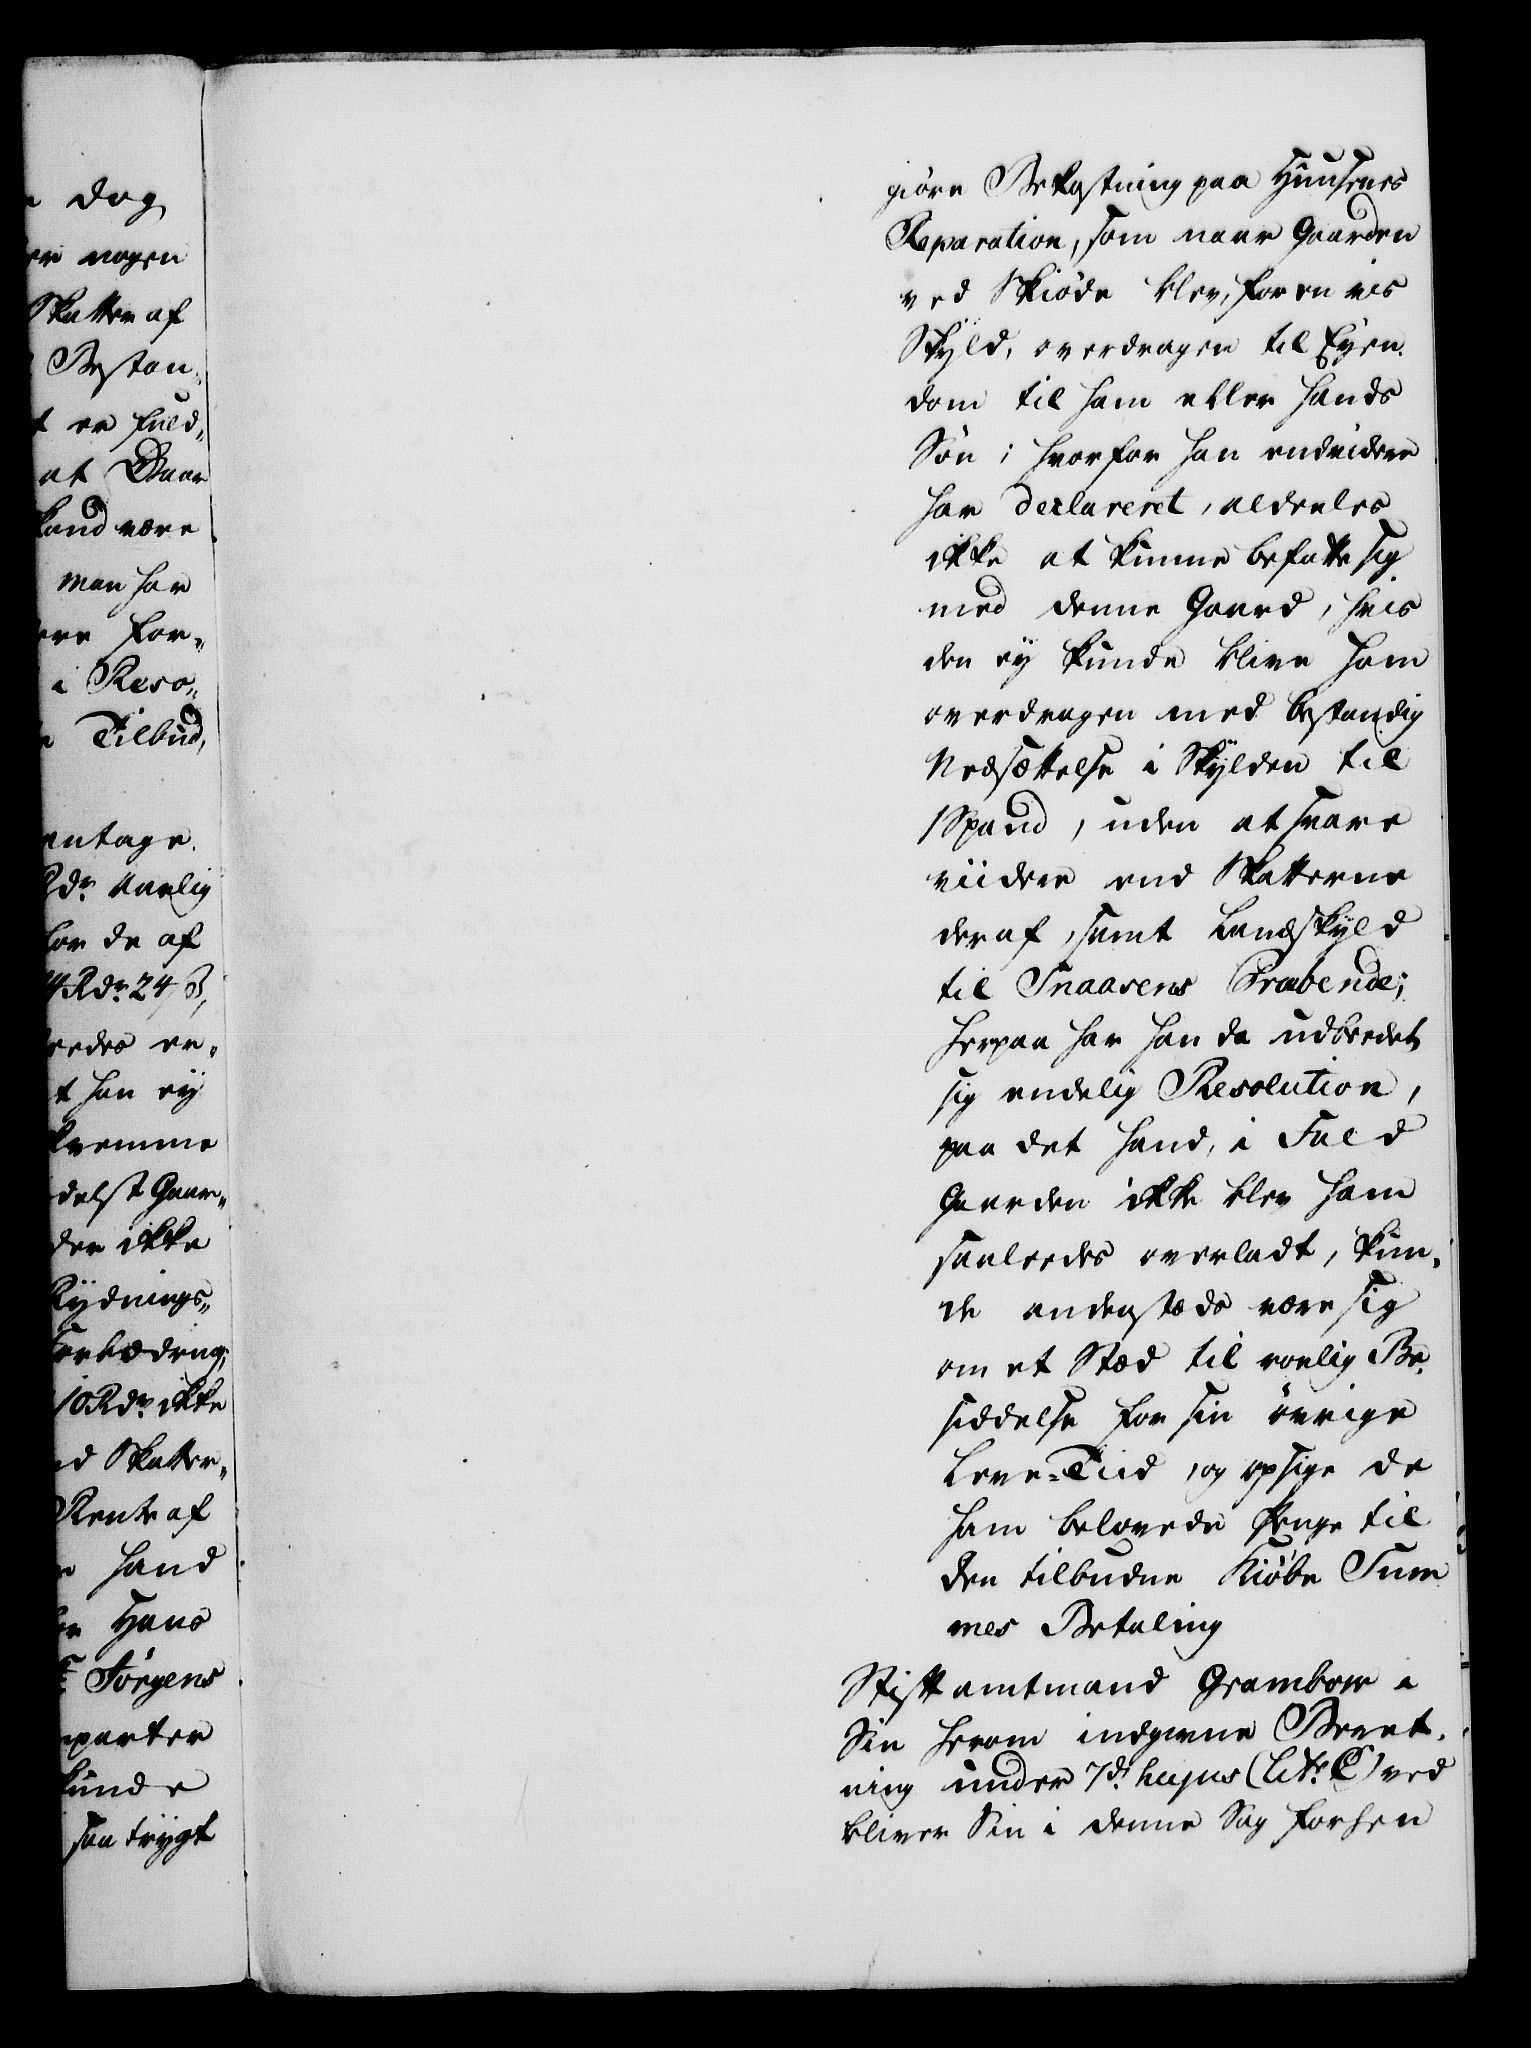 dog
nogen
Skatter af
Bestan„
t er fuld„
at Baar
kand være
man har
ere for„
i Reso„
Tilbud,
entage.
Rdr. aarlig
for de af
4 Rdr. 24 β,
eedes er„
t han ey
kremme
delst Gaar„
der ikke
Rydnings„
Forbædring;
10 Rdr. ikke
ed Skatter„
Rente af
hand
Hans
Jörgens
parter
kunde
saa trygt
giöre Bekostning paa Huusenes
Reparation, som naar Gaarden
ved Skiöde blev, for en vis
Skyld, overdragen til Eyen„
dom til ham eller hands
Sön; hvorfor han endvidere
har declareret, aldeeles
ikke at kunne befatte sig
med denne Gaard, hvis
den ey kunde blive ham
overdragen med bestandig
Nedsættelse i Skylden til
1 Spand, uden at svare
viidere end Skatterne
deraf, samt Landskyld
til Snaasens Præbende;
herpaa har han da udbeedet
sig endelig Resolution,
paa det hand, i Fald
Gaarden ikke blev ham
saaleedes overladt, kun„
de andenstæds være sig
om et Stæd til roelig Be„
siddelse for sin övrige
Leve=Tiid, og opsige de
ham belovede Penge til
den tilbudne Kiöbe Sum
mes Betaling
Stiftamtmand Grambow i
Sin herom indgivne Beret„
ning under 7de. hujus (Litr. C) ved
bliver Sin i denne Sag forhen